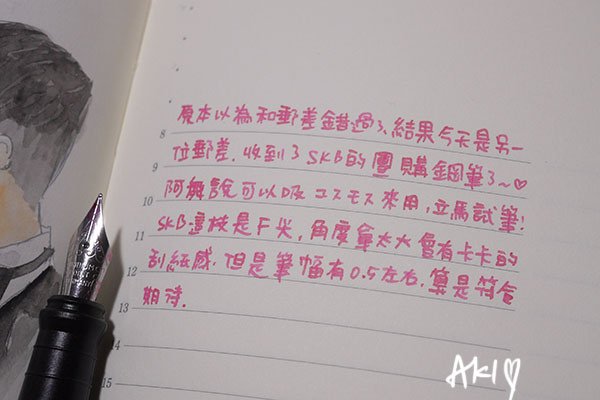 原本以為和郵差錯過了、結果今天是另一
8
位郵差.收到了SKB的團購鋼筆了~♡
9
阿舞說可以吸コスモス來用,立馬試筆!
10
SKB這枝是F尖,角度拿太大會有卡卡的
11
刮紙感.但是筆幅有0.5左右.算是符合
12
期待.
13
14
15
AKI♡